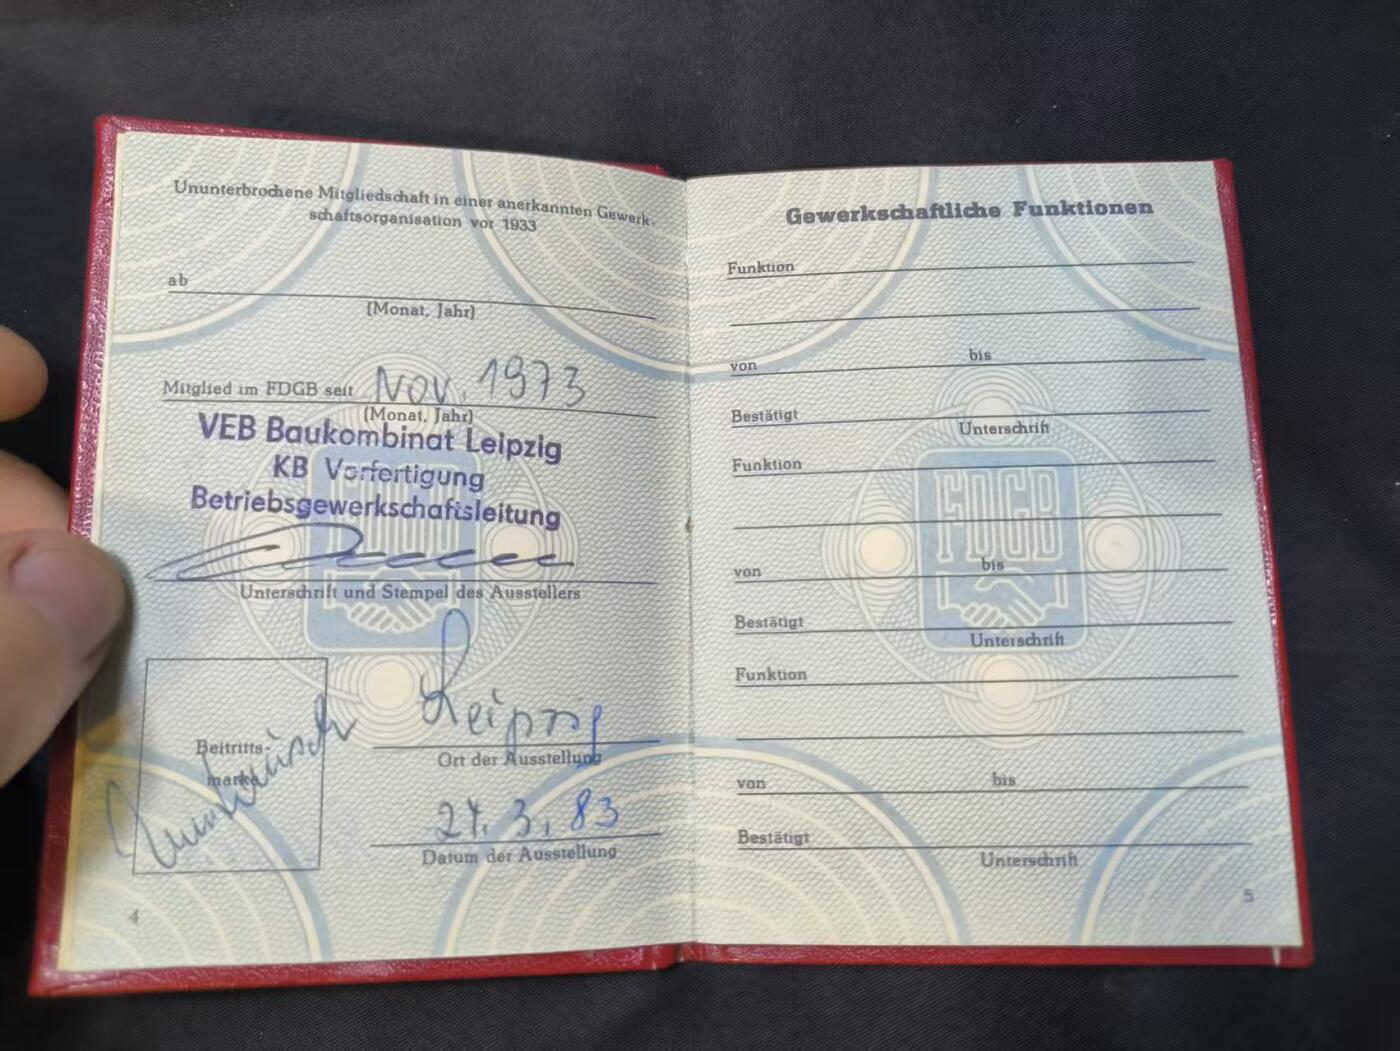 Ununterbrochene Mitgliedschaft in einer anerkannten Gewerk-
schaftsorganisation vor 1933
ab
(Monat, Jahr)
Mitglied im FDGB seit Nov. 1973
(Monat, Jahr)
VEB Baukombinat Leipzig
KB Vorfertigung
Betriebsgewerkschaftsleitung
Unterschrift und Stempel des Ausstellers
Beitritts-
marke
Leipzig
Ort der Ausstellung
24. 3. 83
Datum der Ausstellung
4
Gewerkschaftliche Funktionen
Funktion
von bis
Bestätigt
Unterschrift
Funktion
FDGB
von bis
Bestätigt
Unterschrift
Funktion
von bis
Bestätigt
Unterschrift
5